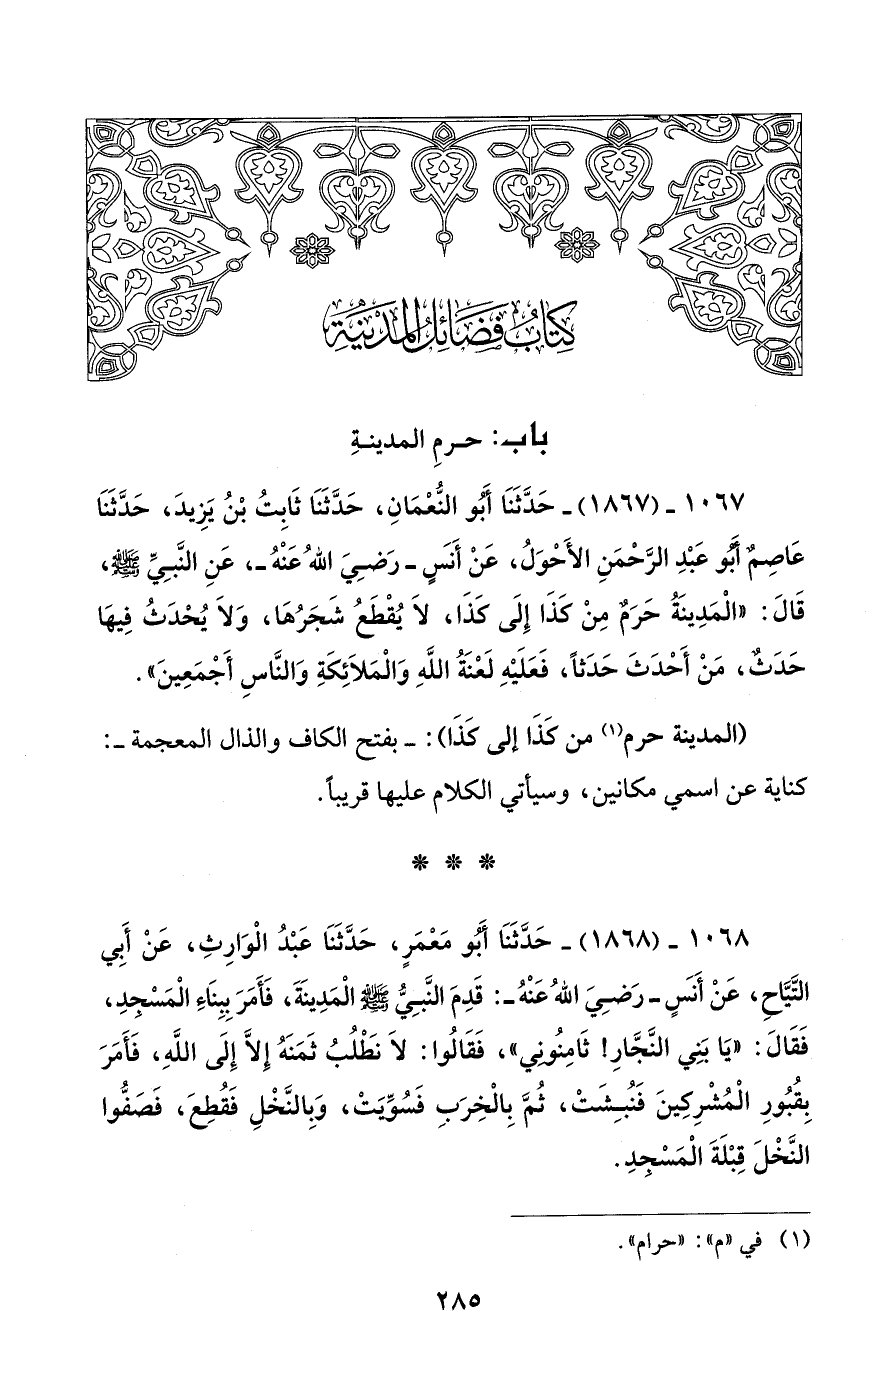 كِتَابُ فَضَائِلِ الْمَدِينَةِ
باب: حرمِ المدينةِ
١٠٦٧ ـ (١٨٦٧) ـ حَدَّثَنَا أَبُو النُّعْمَانِ، حَدَّثَنَا ثَابِتُ بْنُ يَزِيدَ، حَدَّثَنَا
عَاصِمٌ أَبُو عَبْدِ الرَّحْمَنِ الأَحْوَلُ، عَنْ أَنَسٍ ـ رَضِيَ اللهُ عَنْهُ ـ، عَنِ النَّبِيِّ ﷺ،
قَالَ: «الْمَدِينَةُ حَرَمٌ مِنْ كَذَا إِلَى كَذَا، لاَ يُقْطَعُ شَجَرُهَا، وَلاَ يُحْدَثُ فِيهَا
حَدَثٌ، مَنْ أَحْدَثَ حَدَثاً، فَعَلَيْهِ لَعْنَةُ اللَّهِ وَالْمَلاَئِكَةِ وَالنَّاسِ أَجْمَعِينَ».
(المدينة حرم(١) من كَذَا إلى كَذَا): ـ بفتح الكاف والذال المعجمة ـ:
كناية عن اسمي مكانين، وسيأتي الكلام عليها قريباً.
* * *
١٠٦٨ ـ (١٨٦٨) ـ حَدَّثَنَا أَبُو مَعْمَرٍ، حَدَّثَنَا عَبْدُ الْوَارِثِ، عَنْ أَبِي
التَّيَّاحِ، عَنْ أَنَسٍ ـ رَضِيَ اللهُ عَنْهُ ـ: قَدِمَ النَّبِيُّ ﷺ الْمَدِينَةَ، فَأَمَرَ بِبِنَاءِ الْمَسْجِدِ،
فَقَالَ: «يَا بَنِي النَّجَّارِ! ثَامِنُونِي»، فَقَالُوا: لاَ نَطْلُبُ ثَمَنَهُ إِلاَّ إِلَى اللَّهِ، فَأَمَرَ
بِقُبُورِ الْمُشْرِكِينَ فَنُبِشَتْ، ثُمَّ بِالْخِرَبِ فَسُوِّيَتْ، وَبِالنَّخْلِ فَقُطِعَ، فَصَفُّوا
النَّخْلَ قِبْلَةَ الْمَسْجِدِ.
(١) في «م»: «حرام».
٢٨٥